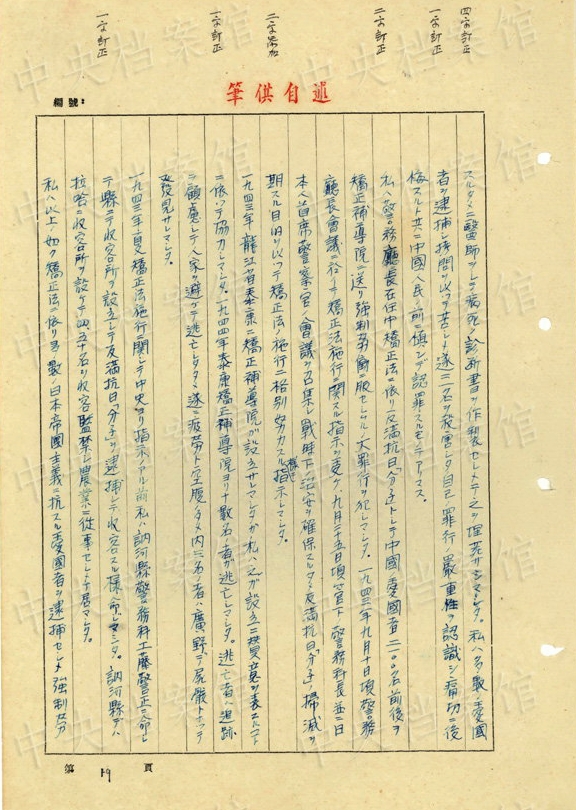 四字訂正
一字訂正
二字訂正
二字添加
一字訂正
一字訂正
筆供自述
編號:
スルタメニ醫師ヲシテ病死ノ診断書ヲ作製セシメテ之ヲ埋葬サシマシタ。私ハ多数ノ愛國
者ヲ逮捕シ拷問ヲ以ツテ苦シメ遂ニ二名ヲ殺害シタ自己ノ罪行ノ嚴重性ヲ認識シ痛切ニ後
悔スルト共ニ中國人民ノ前ニ慎ンデ認罪スルモノデアリマス。
私ハ警務廳長在任中矯正法ニ依リ反満抗日分子トシテ中國ノ愛國者二〇〇名前後ヲ
矯正補導院ニ送リ強制労働ニ服セシメル大罪行ヲ犯シマシタ。一九四三年九月十日頃警務
廳長會議ニ於テ矯正法施行ニ関スル指示ヲ受ケ九月二十五日頃管下警務科長並ニ日
本人首席警察官ノ會議ヲ召集シ戰時下治安ノ確保ノタメ反満抗日分子ノ掃滅ヲ
期スル目的ヲ以ツテ矯正法ノ施行ニ格別努力スル様指示シマシタ。
一九四三年龍江省泰康ニ矯正補導院ガ設立サレマシタガ私ハ之ガ設立ニ賛意ヲ表スルコト
ニ依ツテ協力シマシタ。一九四四年泰康矯正補導院ヨリ十数名ノ者ガ逃亡シマシタ。逃亡者ハ追跡
ヲ顧慮シテ人家ヲ避ケテ逃亡シタタメ遂ニ疲勞ト空腹ノタメ内三名ノ者ハ廣野デ屍骸トナツテ
發見サレマシタ。
一九四三年夏矯正法施行ニ関シテ中央ヨリ指示ノアル前私ハ訥河縣警務科工藤警正ニ命シ
テ縣ニテ收容所ヲ設立シテ反満抗日分子ヲ逮捕シテ收容スル様命シマシタ。訥河縣デハ
拉哈ニ收容所ヲ設ケテ四五十名ヲ收容監禁シ農業ニ從事セシメテ居マシタ。
私ハ以上ノ如ク矯正法ニ依リ多数ノ日本帝國主義ニ抗スル愛國者ヲ逮捕セシメ強制労
第 19 頁
中央档案馆